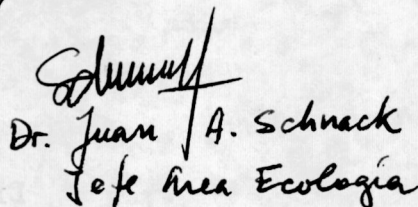 Dr. Juan A. Schnack
Jefe Area Ecología